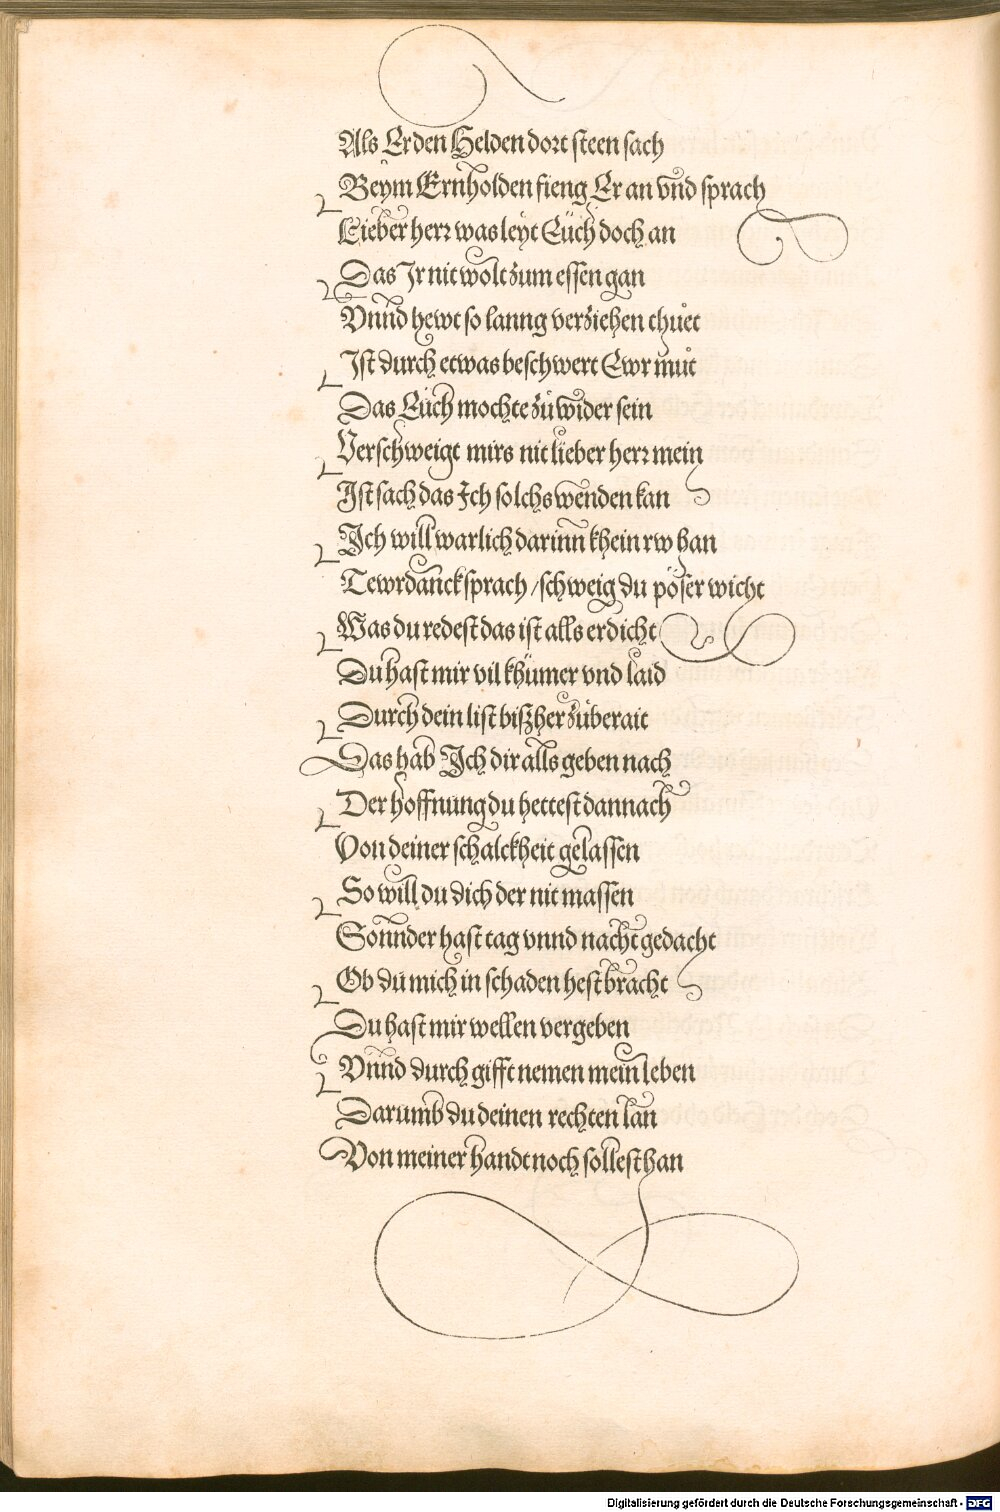 Als Er den Helden dort steen sach
Beÿm Ernholden fieng Er an vnd sprach
Lieber herr was leÿt Eüch doch an
Das Ir nit wolt zum essen gan
Vnnd hewt so lanng verziehen thuͦet
Ist durch etwas beschwert Ewr muͦt
Das Eüch mochte zuͦ wider sein
Verschweigt mirs nit lieber herr mein
Ist sach das Ich solchs wenden kan
Ich will warlich darinn khein rw han
Tewrdannck sprach / schweig du pöser wicht
Was du redest das ist alls erdicht
Du hast mir vil khümer vnd laid
Durch dein list bißher zuͦberait
Das hab Ich dir alls geben nach
Der hoffnung du hettest dannach
Von deiner schalckheit gelassen
So will du dich der nit massen
Sonnder hast tag vnnd nacht gedacht
Ob du mich in schaden hest bracht
Du hast mir wellen vergeben
Vnnd durch gifft nemen mein leben
Darumb du deinen rechten lan
Von meiner handt noch sollest han
Digitalisierung gefördert durch die Deutsche Forschungsgemeinschaft - DFG